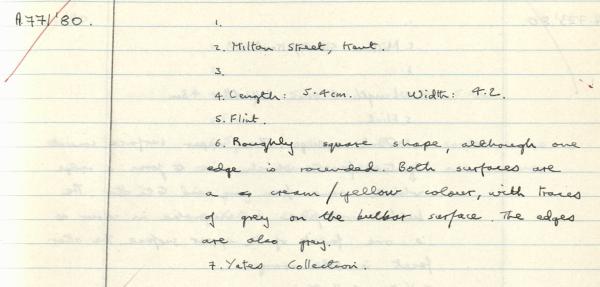 A77/'80.
1.
2. Milton Street, Kent.
3.
4. Length: 5.4cm. Width: 4.2.
5. Flint.
6. Roughly square shape, although one
edge is rounded. Both surfaces are
a cream/yellow colour, with traces
of grey on the bulbar surface. The edges
are also grey.
7. Yates Collection.